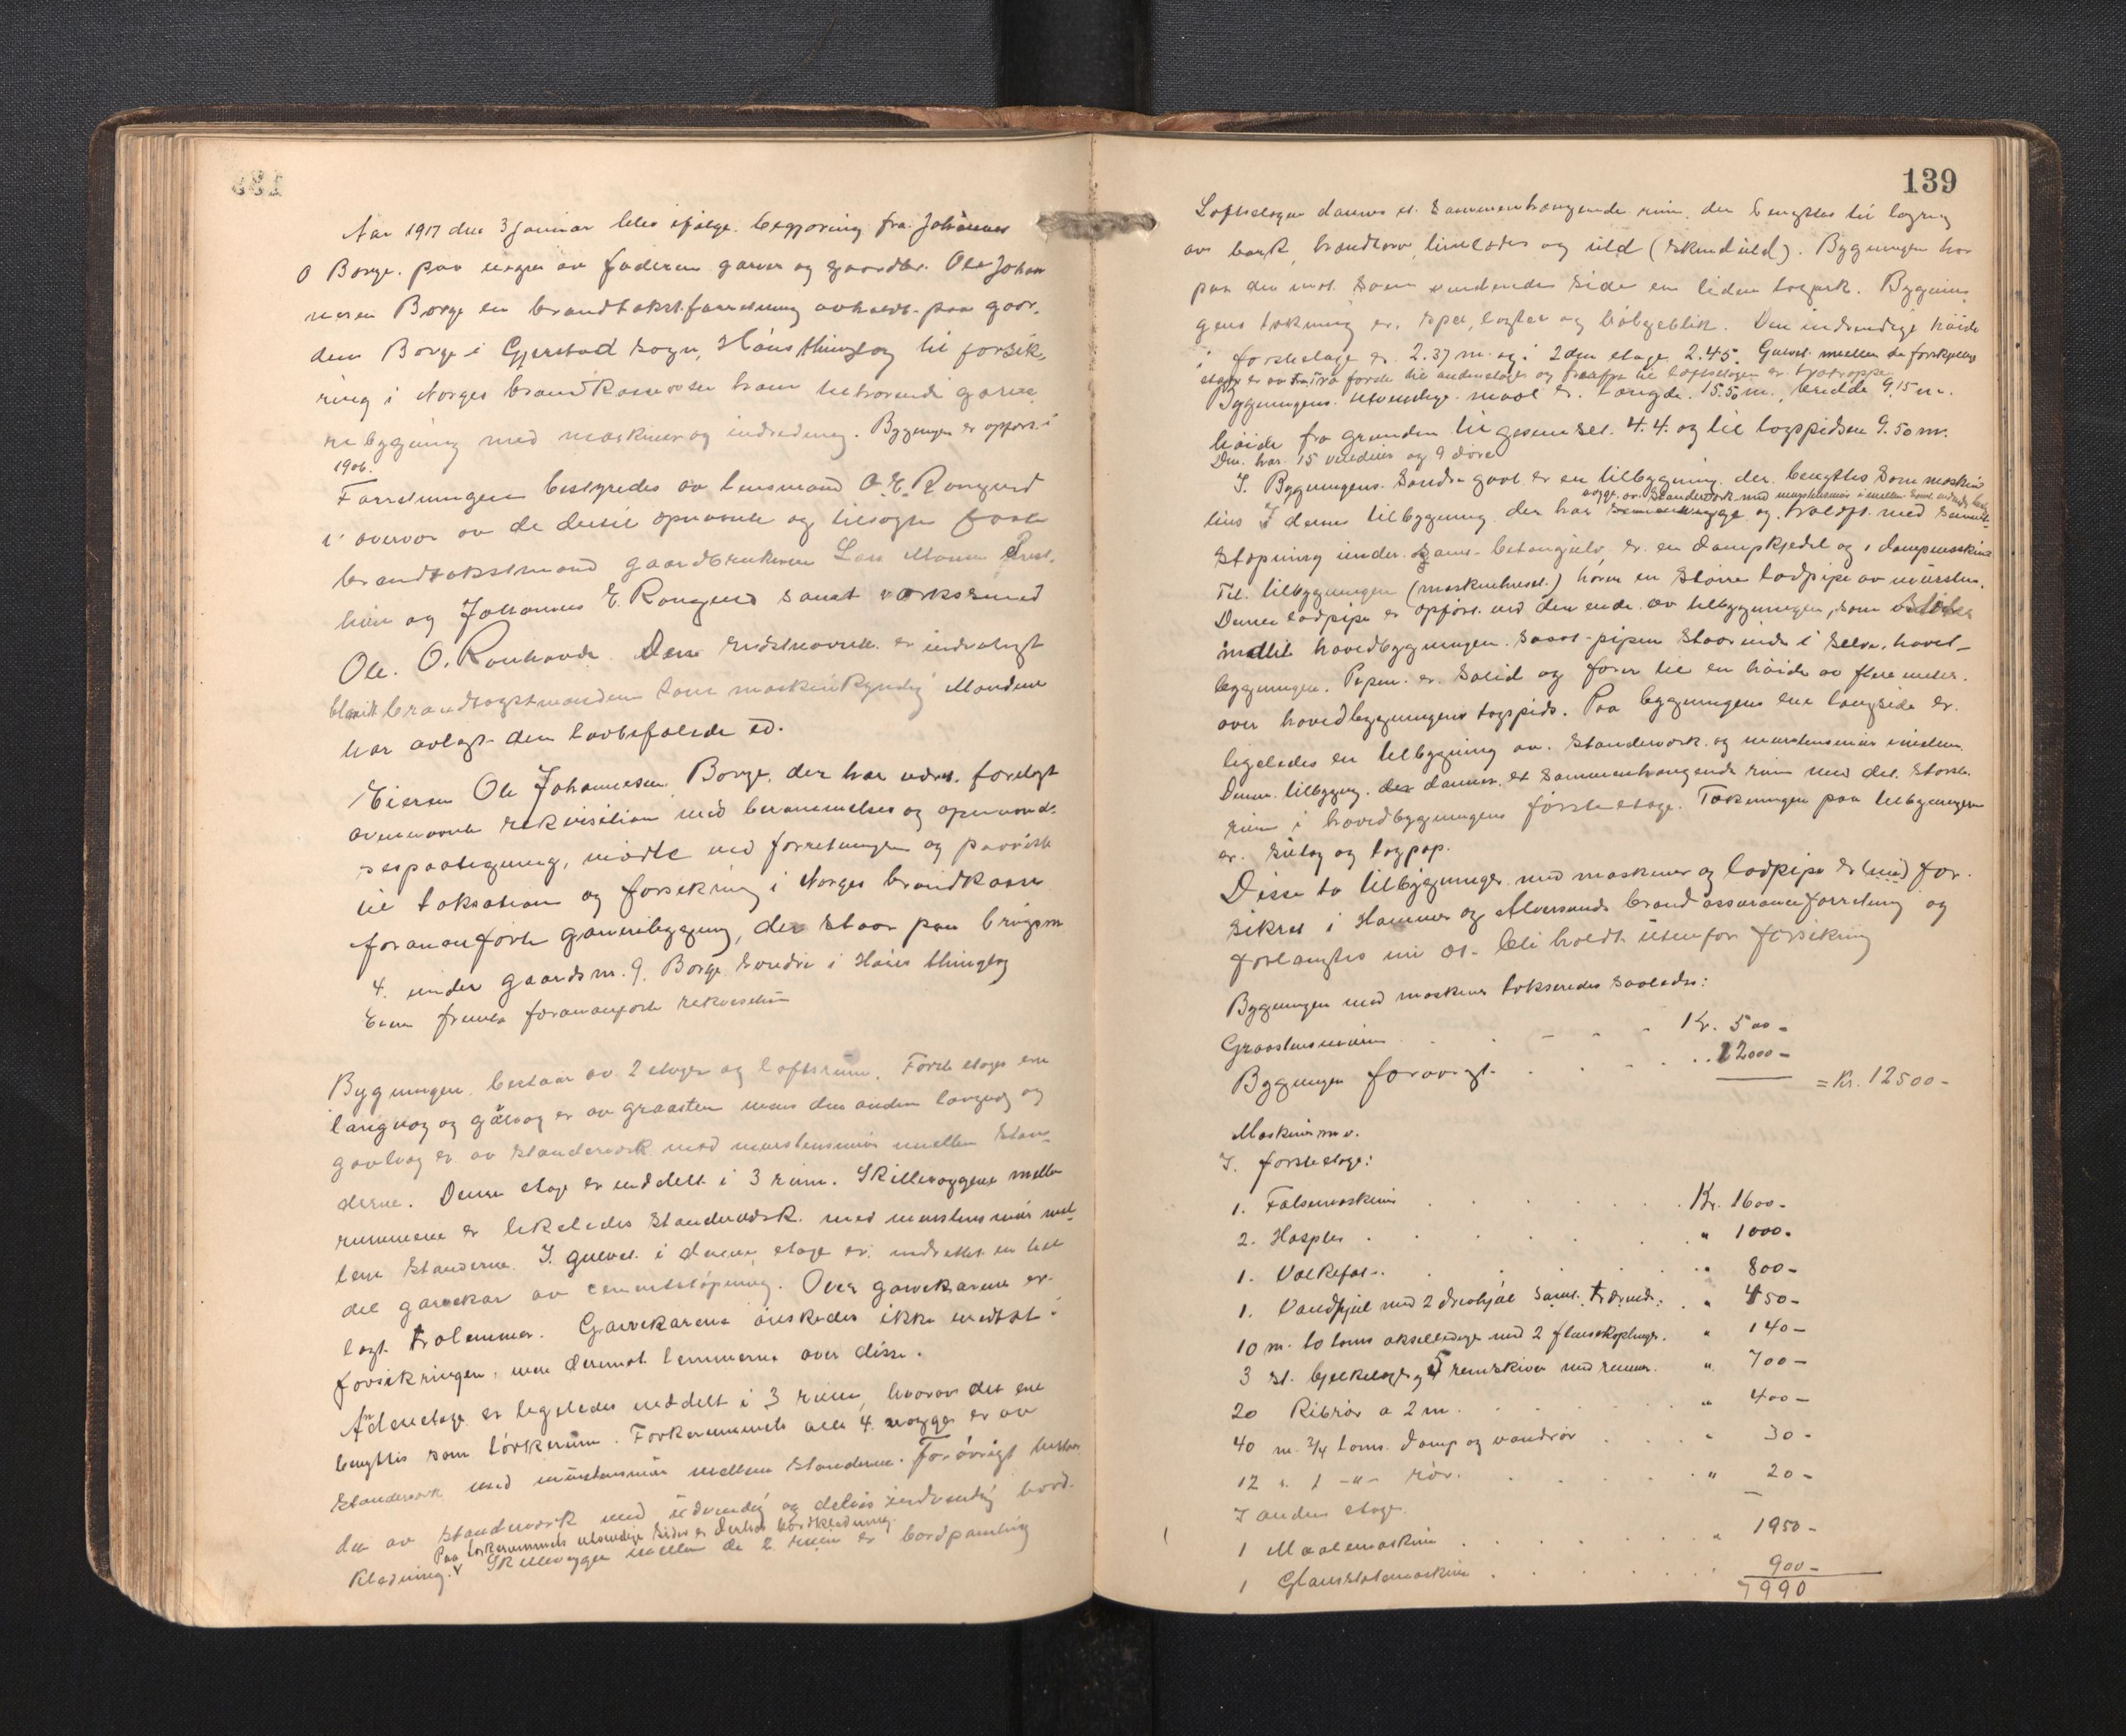 Aar 1917 den 3 januar blev ifølge begjæring fra Johannes
O Borge paa vegne av faderen garver og gaardbr. Ole Johan
nesen Borge en brandtakstforretning avholdt paa gaar-
den Borge i Gjerstad sogn, Haus thinglag til forsik-
ring i Norges brandkasse over ham tilhørende garve
ribygning med maskiner og indredning. Bygningen er opført i
1906.
Forretningen bestyredes av lensmand O. E. Rongved
i overvær av de dertil opnævnte og tilsagte faste
brandtakstmænd gaardbrukerne Lars Monsen
og Johannes E. Rongved samt verkssmed
Ole. O. Den sidstnævnte er indvalgt
blandt brandtagstmændene som maskinkyndig Mændene
har avlagt den lovbefalede ed.
Eieren Ole Johannesen Borge, der har været forelagt
ovennævnte rekvisition med berammelses og opnævnel-
sespaategning, mødte ved forretningen og paaviste
til taksation og forsikring i Norges brandkasse
forananførte garveribygning, der staar paa bruksnr.
4. under gaardsnr. 9. Borge Søndre i Haus thinglag
Eieren fremla forananførte rekvisition
Bygningen bestaar av 2 etager og loftsrum. Første etages ene
langvæg og gavlvæg er av graasten mens den anden langvæg og
gavlvæg er av standerverk med murstensmur mellem stan-
derne. Denne etage er inddelt i 3 rum. Skillevæggene mellem
rummene er likeledes standerverk med murstensmur mel-
lem standerne. I gulvet i denne etage er indrettet en hel
del garvekar av cementstøpning. Over garvekarene er
lagt trælemmer. Garvekarene ønskedes ikke medtat i
forsikringen, men derimot lemmerne over disse.
Anden etage er ligeledes inddelt i 3 rum, hvorav det ene
benyttes som tørkerum. Tørkerummets alle 4 vægge er av
standerverk med murstensmur mellem standerne. Forøvrigt bestaar
den av standerverk med utvendig og delvis indvendig bord-
Paa tørkerummets utvendige sider er derhos bordklædning.
klædning. Skillevæggen mellem de 2 rum er bordpanling
139
Loftsetagen danner et sammenhængende rum, der benyttes til lagring
av bark, brændtorv, limlæder og uld (skinduld). Bygningen har
paa den mot Søen vendende side en liden takark. Bygnin
gens tækning er spon, lægter og bølgeblik. Den indvendige høide
i første etage er 2.37 m. og i 2den etage 2.45. Gulvet mellem de forskjellige
etager er av træ fra første til anden etage og fra til loftsetagen er trætrappe.
Bygningens utvendige maal er: længde 15.50 m., bredde 9.15 m.
høide fra grunden til gesimset 4.4. og til tagspidsen 9.50 m.
Den har 15 vinduer og 9 døre
I Bygningens Søndre gavl er en tilbygning, der benyttes som maskin
vægge av standerverk med murstensmur imellem
hus I denne tilbygning, der har og tækket med
støpning under samt betongulv, er en dampkjedel og 1 dampmaskine
Til tilbygningen (maskinhuset) hører en større lodpipe av mursten.
Denne lodpipe er opført ved den ende av tilbygningen, som støter
indtil hovedbygningen saa at pipen staar inde i selve hoved-
bygningen. Pipen er solid og fører til en høide av flere meter
over hovedbygningens tagspids. Paa bygningens ene langside er
ligeledes en tilbygning av standerverk og murstensmur imellem.
Denne tilbygning danner et sammenhængende rum med det største
rum i hovedbygningens første etage. Tækningen paa tilbygningen
er sutag og tagpap.
Disse to tilbygninger med maskiner og lodpipe er (med) for-
sikret i Hammer og Alversunds brandassuranceforretning og
forlangtes nu at bli holdt utenfor forsikring
Bygningen med maskiner takseredes saaledes:
Graastensmuren . . . Kr. 500 -
Bygningen forøvrigt . . . 12000 -
= Kr. 12500 -
Maskiner m.v.
I. første etage:
1. Falsemaskine . . . Kr. 1600 -
2. Haspler . . . " 1000 -
1. Valkefat . . . 800 -
1. Vandhjul med 2 drivhjul samt trærende . " 450 -
10 m. to toms akselledning med 2 flensekoplinger . " 140 -
3 st. hjelkelager og 5 remskiver med remmer . " 700 -
20 Ribrør a 2 m. . . . " 400 -
40 m. 3/4 toms damp og vandrør . . . " 30 -
12 " 1 -"- rør . . . " 20 -
I anden etage
1 Maalemaskine . . . " 1950 -
1 Glansstøtemaskine . . . 900 -
7990